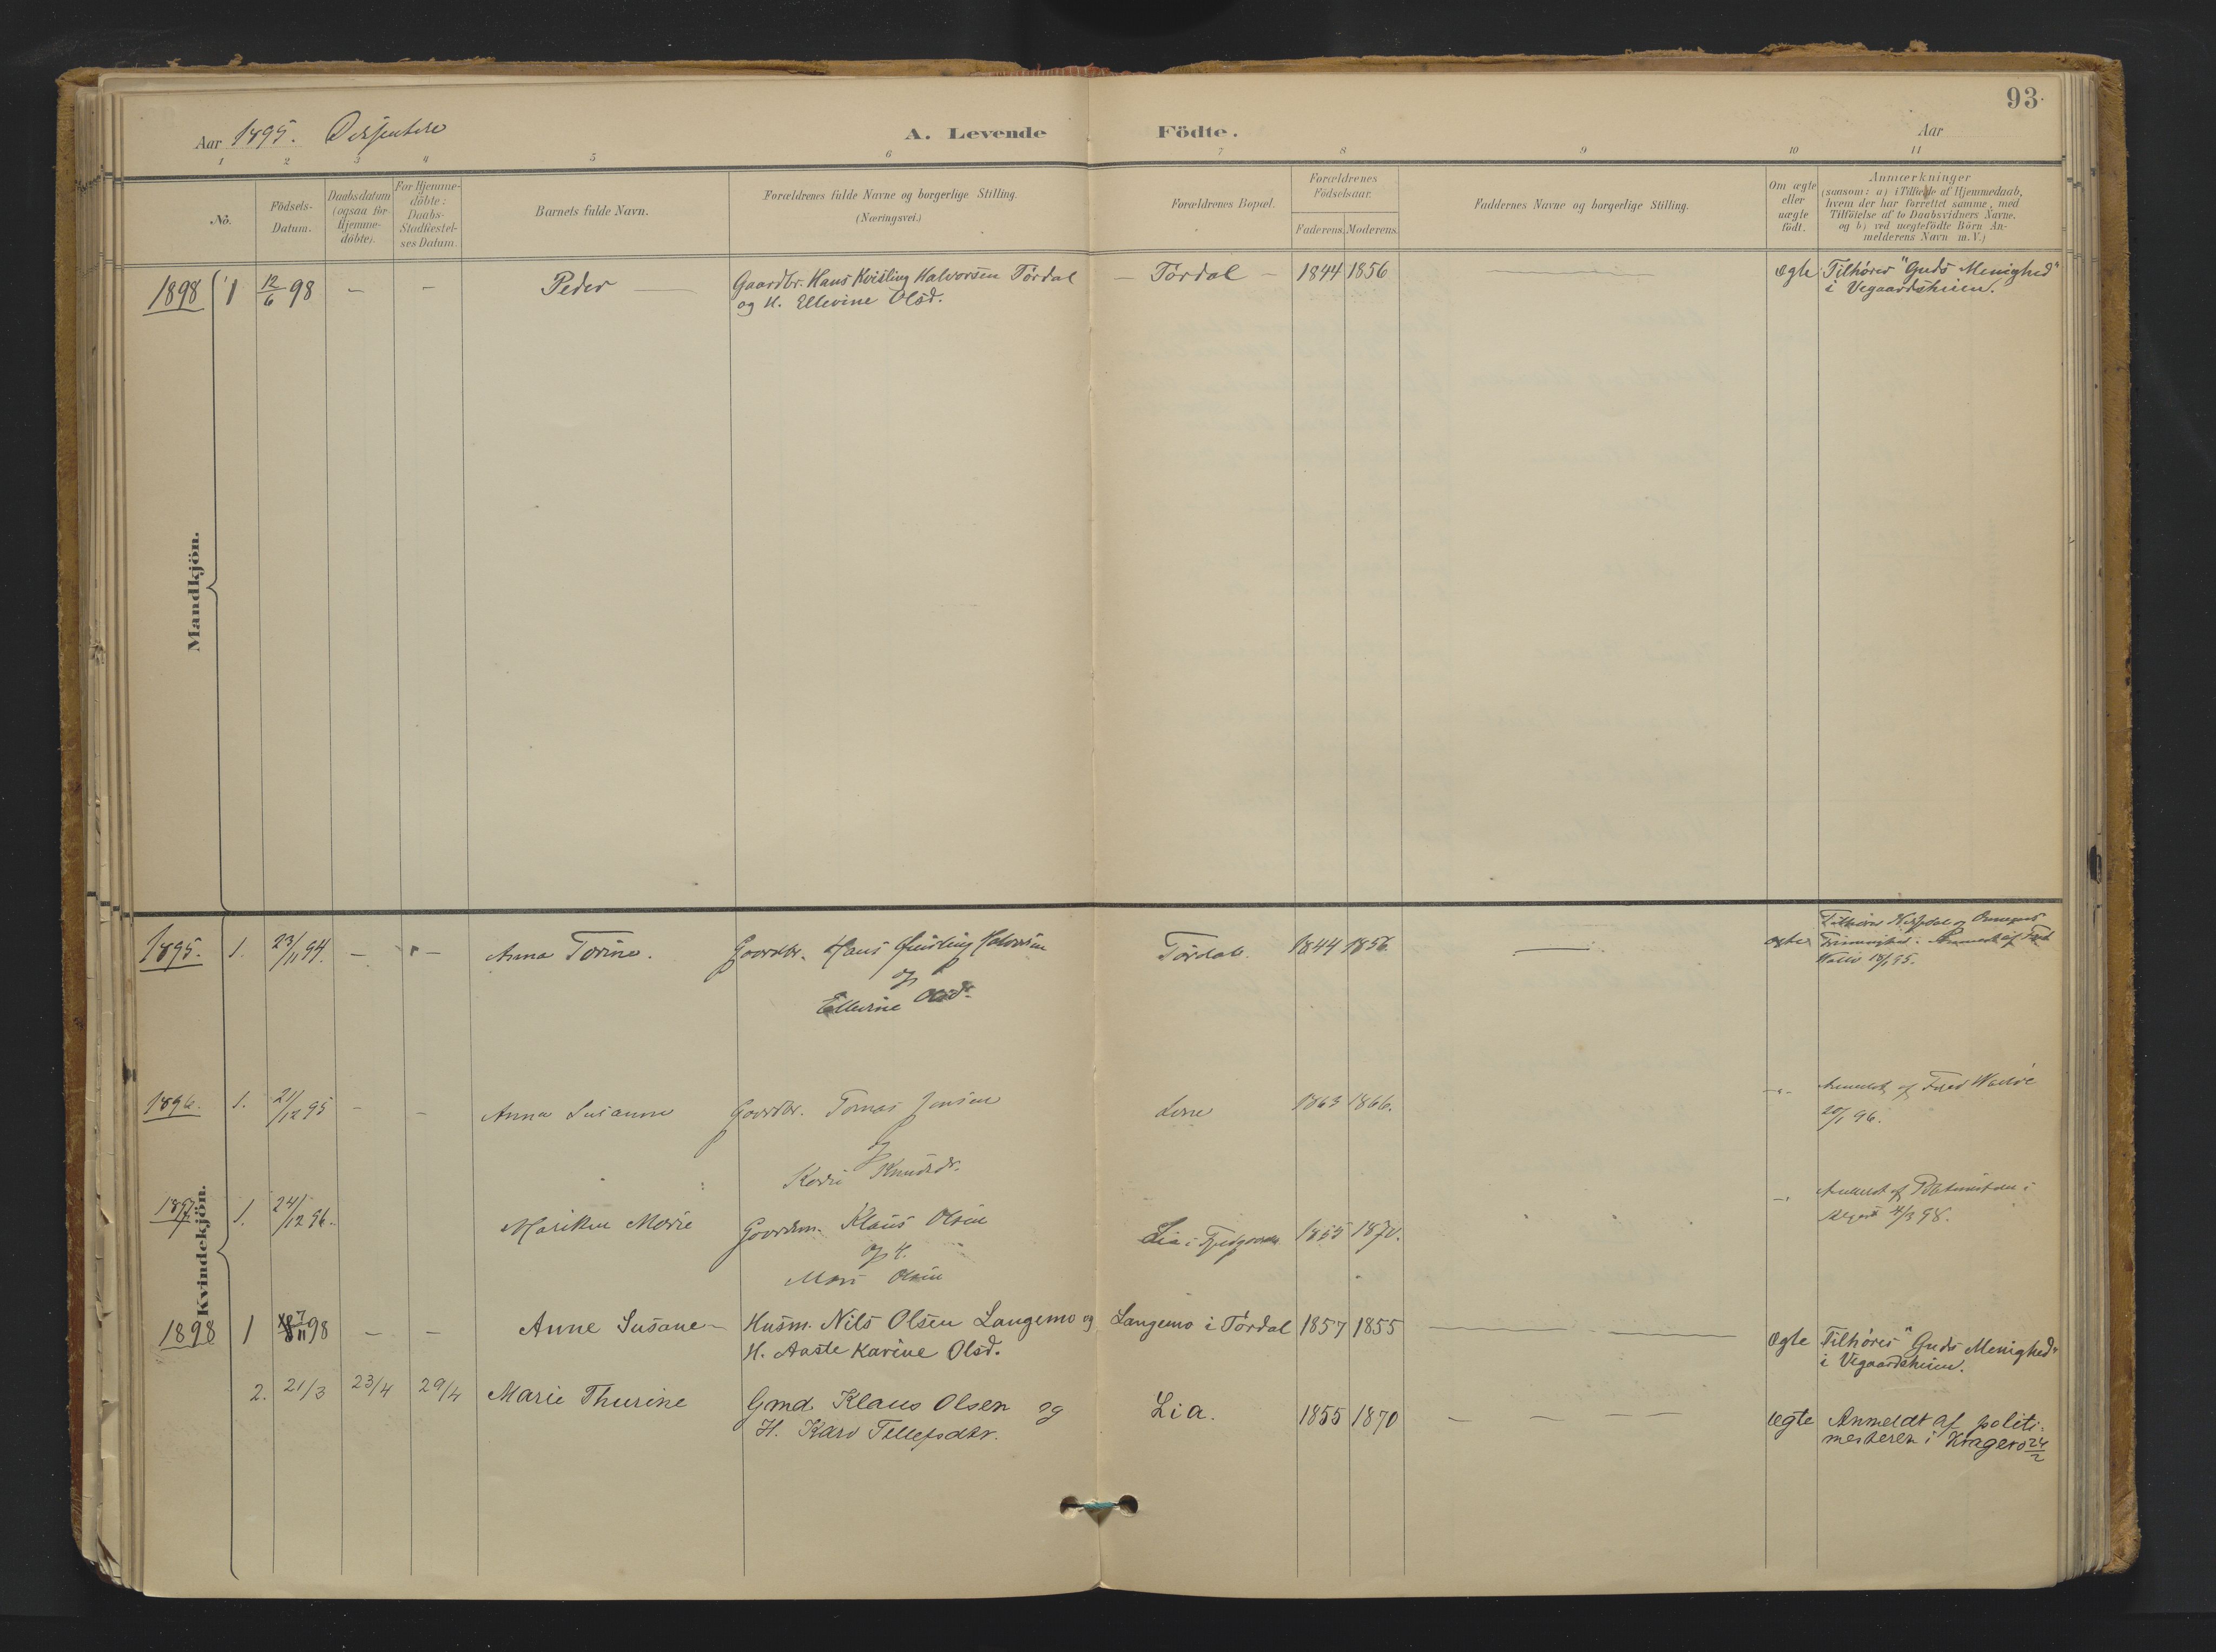 93.
Aar 1895. Dissentere A. Levende Födte. Aar
1 2 3 4 5 6 7 8 9 10 11
No.
Födsels-
Datum.
Daabsdatum
(ogsaa for
Hjemme-
döbte).
For Hjemme-
döbte:
Daabs-
Stadfæstel-
ses Datum.
Barnets fulde Navn.
Forældrenes fulde Navne og borgerlige Stilling.
(Næringsvei.)
Forældrenes Bopæl.
Forældrenes
Födselsaar.
Faderens. Moderens.
Faddernes Navne og borgerlige Stilling.
Om ægte
eller
uægte
födt.
Anmærkninger
(saasom: a) i Tilfælde af Hjemmedaab,
hvem der har forrettet samme, med
Tilföielse af to Daabsvidners Navne.
og b) ved uægtefödte Börn An-
melderens Navn m.V.)
Mandkjön.
1898 1 12/6 98 — — Peder — Gaardbr. Hans Kvisling Halvorsen Tördal — Tördal — 1844 1856 — ægte Tilhörer "Guds Menighed"
og H. Ellevine Olsd. i Vegaardsheien.
Kvindekjön.
1895. 1. 23/11 94. — — Anna Torine. Gaardbr. Hans Halvorsen Tördal. 1844 1856. — ægte
og
Ellevine Olsd. 18/1 95.
1896. 1. 21/12 95 — — Anna Susanne Gaardbr. Tomas Jensen 1863 1866. -"- Anmeldt af
og 20/1 96.
Kari Knudsdr.
1897. 1. 24/12 96. Mariken Marie Gaardm. Klaus Olsen Lia i 1855 1870. -"- Anmeldt af
og H. 4/3 98.
Olsen
1898 1 7/11 98 — — Anne Susane — Husm. Nils Olsen Langemo og Langemo i Tördal 1857 1855 — — Ægte Tilhörer "Guds Menighed"
H. Aaste Karine Olsd. i Vegaardsheien.
2. 21/3 23/4 29/4 Marie Thurine Gmd Klaus Olsen og Lia. 1855 1870 — — — — ægte Anmeldt af politi-
H. Karo Tellefsdtr. mesteren i Kragerö 24/2